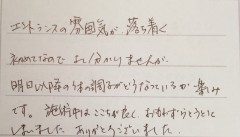 エントランスの雰囲気が、落ち着く
初めてなのでよく分かりませんが、
明日以降の体の調子がどうなっているか楽しみ
です。施術中はここちが良く、おもわずうとうとし
しました。ありがとうございました。